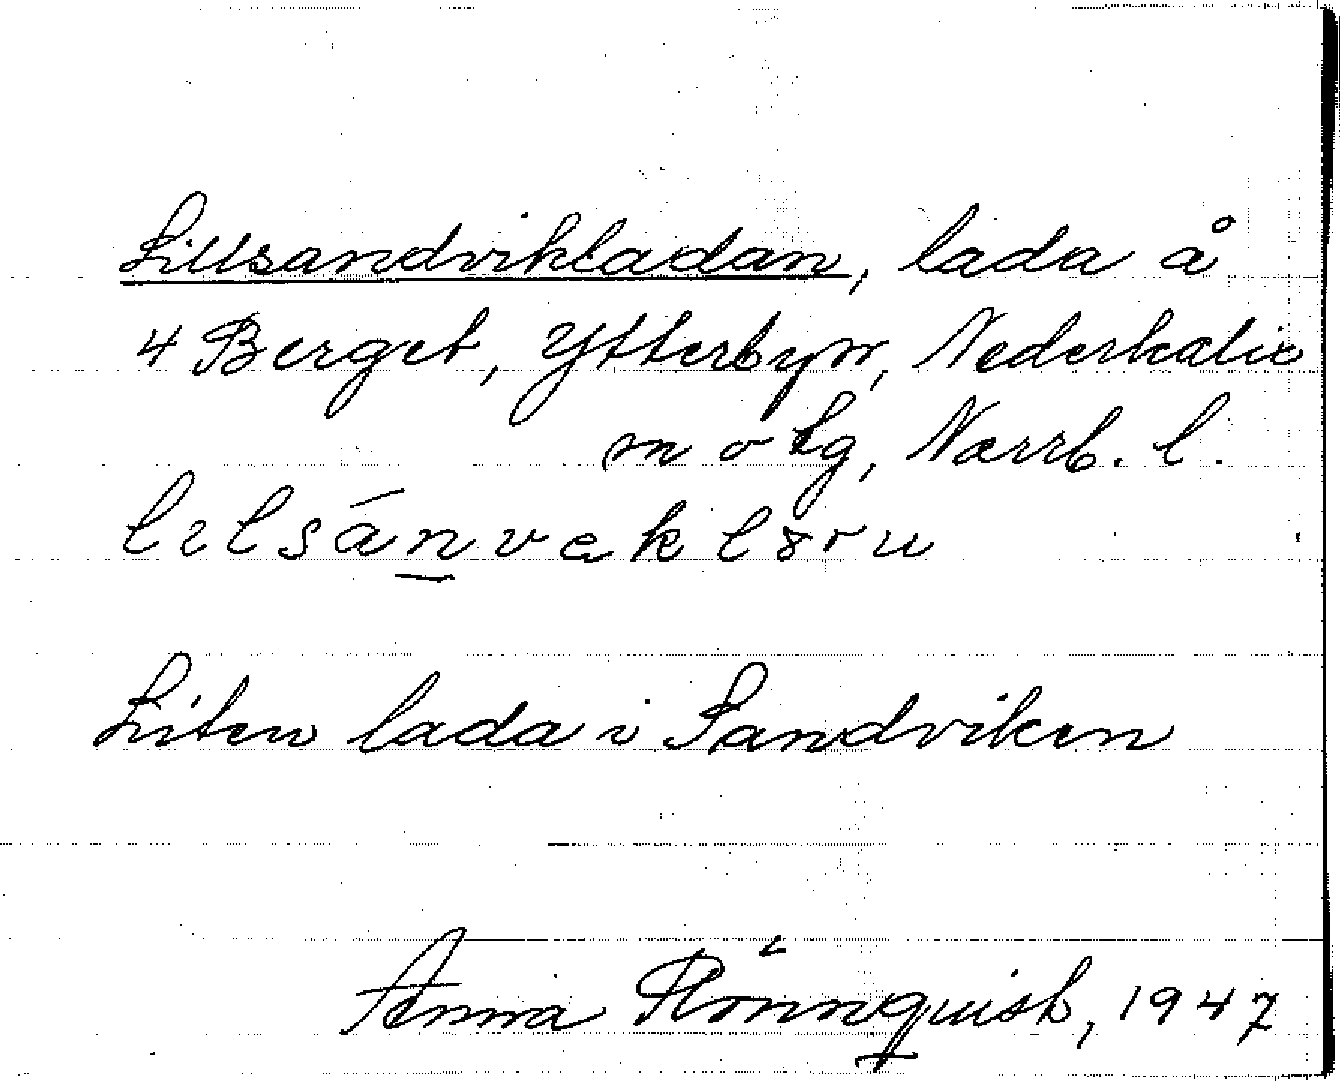 Lillsandvikladan, lada å
4 Berget, Ytterbyn, Nederkalix
sn o tg, Norrb. l.
Liten lada i Sandviken
Anna Rönnquist, 1947